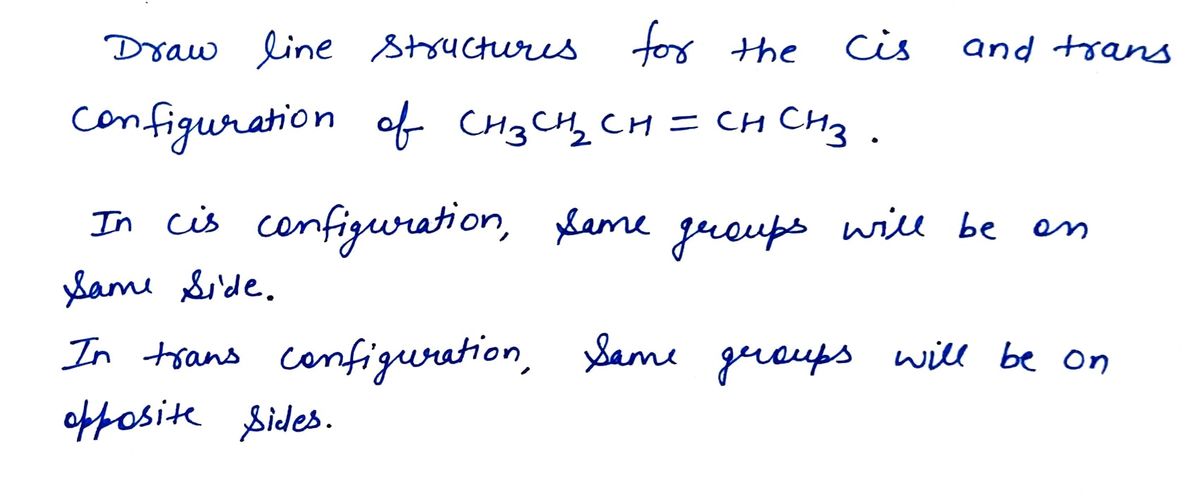 Draw line structures for the cis and trans
configuration of CH₃CH₂CH = CHCH₃.
In cis configuration, same groups will be on
same side.
In trans configuration, same groups will be on
opposite sides.